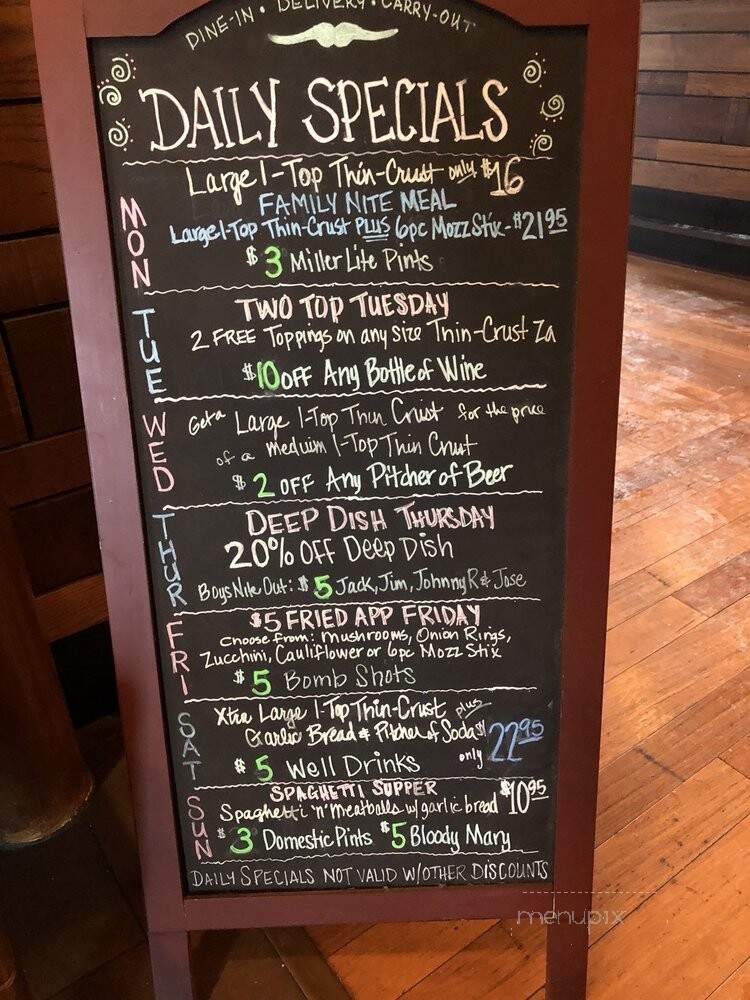 DINE-IN • DELIVERY • CARRY-OUT
DAILY SPECIALS
MON
Large 1-Top Thin-Crust only $16
FAMILY NITE MEAL
Large 1-Top Thin-Crust PLUS 6pc Mozz Stix - $21.95
$3 Miller Lite Pints
TUE
TWO TOP TUESDAY
2 FREE Toppings on any size Thin-Crust Za
$10 OFF Any Bottle of Wine
WED
Get a Large 1-Top Thin Crust for the price
of a meduim 1-Top Thin Crust
$2 OFF Any Pitcher of Beer
THUR
DEEP DISH THURSDAY
20% OFF Deep Dish
Boys Nite Out: $5 Jack, Jim, Johnny R & Jose
FRI
$5 FRIED APP FRIDAY
Choose from: mushrooms, Onion Rings,
Zucchini, Cauliflower or 6pc Mozz Stix
$5 Bomb Shots
SAT
Xtra Large 1-Top Thin-Crust plus
Garlic Bread & Pitcher of Soda
only 22.95
$5 Well Drinks
SUN
SPAGHETTI SUPPER
Spaghetti 'n' Meatballs w/ garlic bread $10.95
$3 Domestic Pints $5 Bloody Mary
DAILY SPECIALS NOT VALID W/OTHER DISCOUNTS
menupix